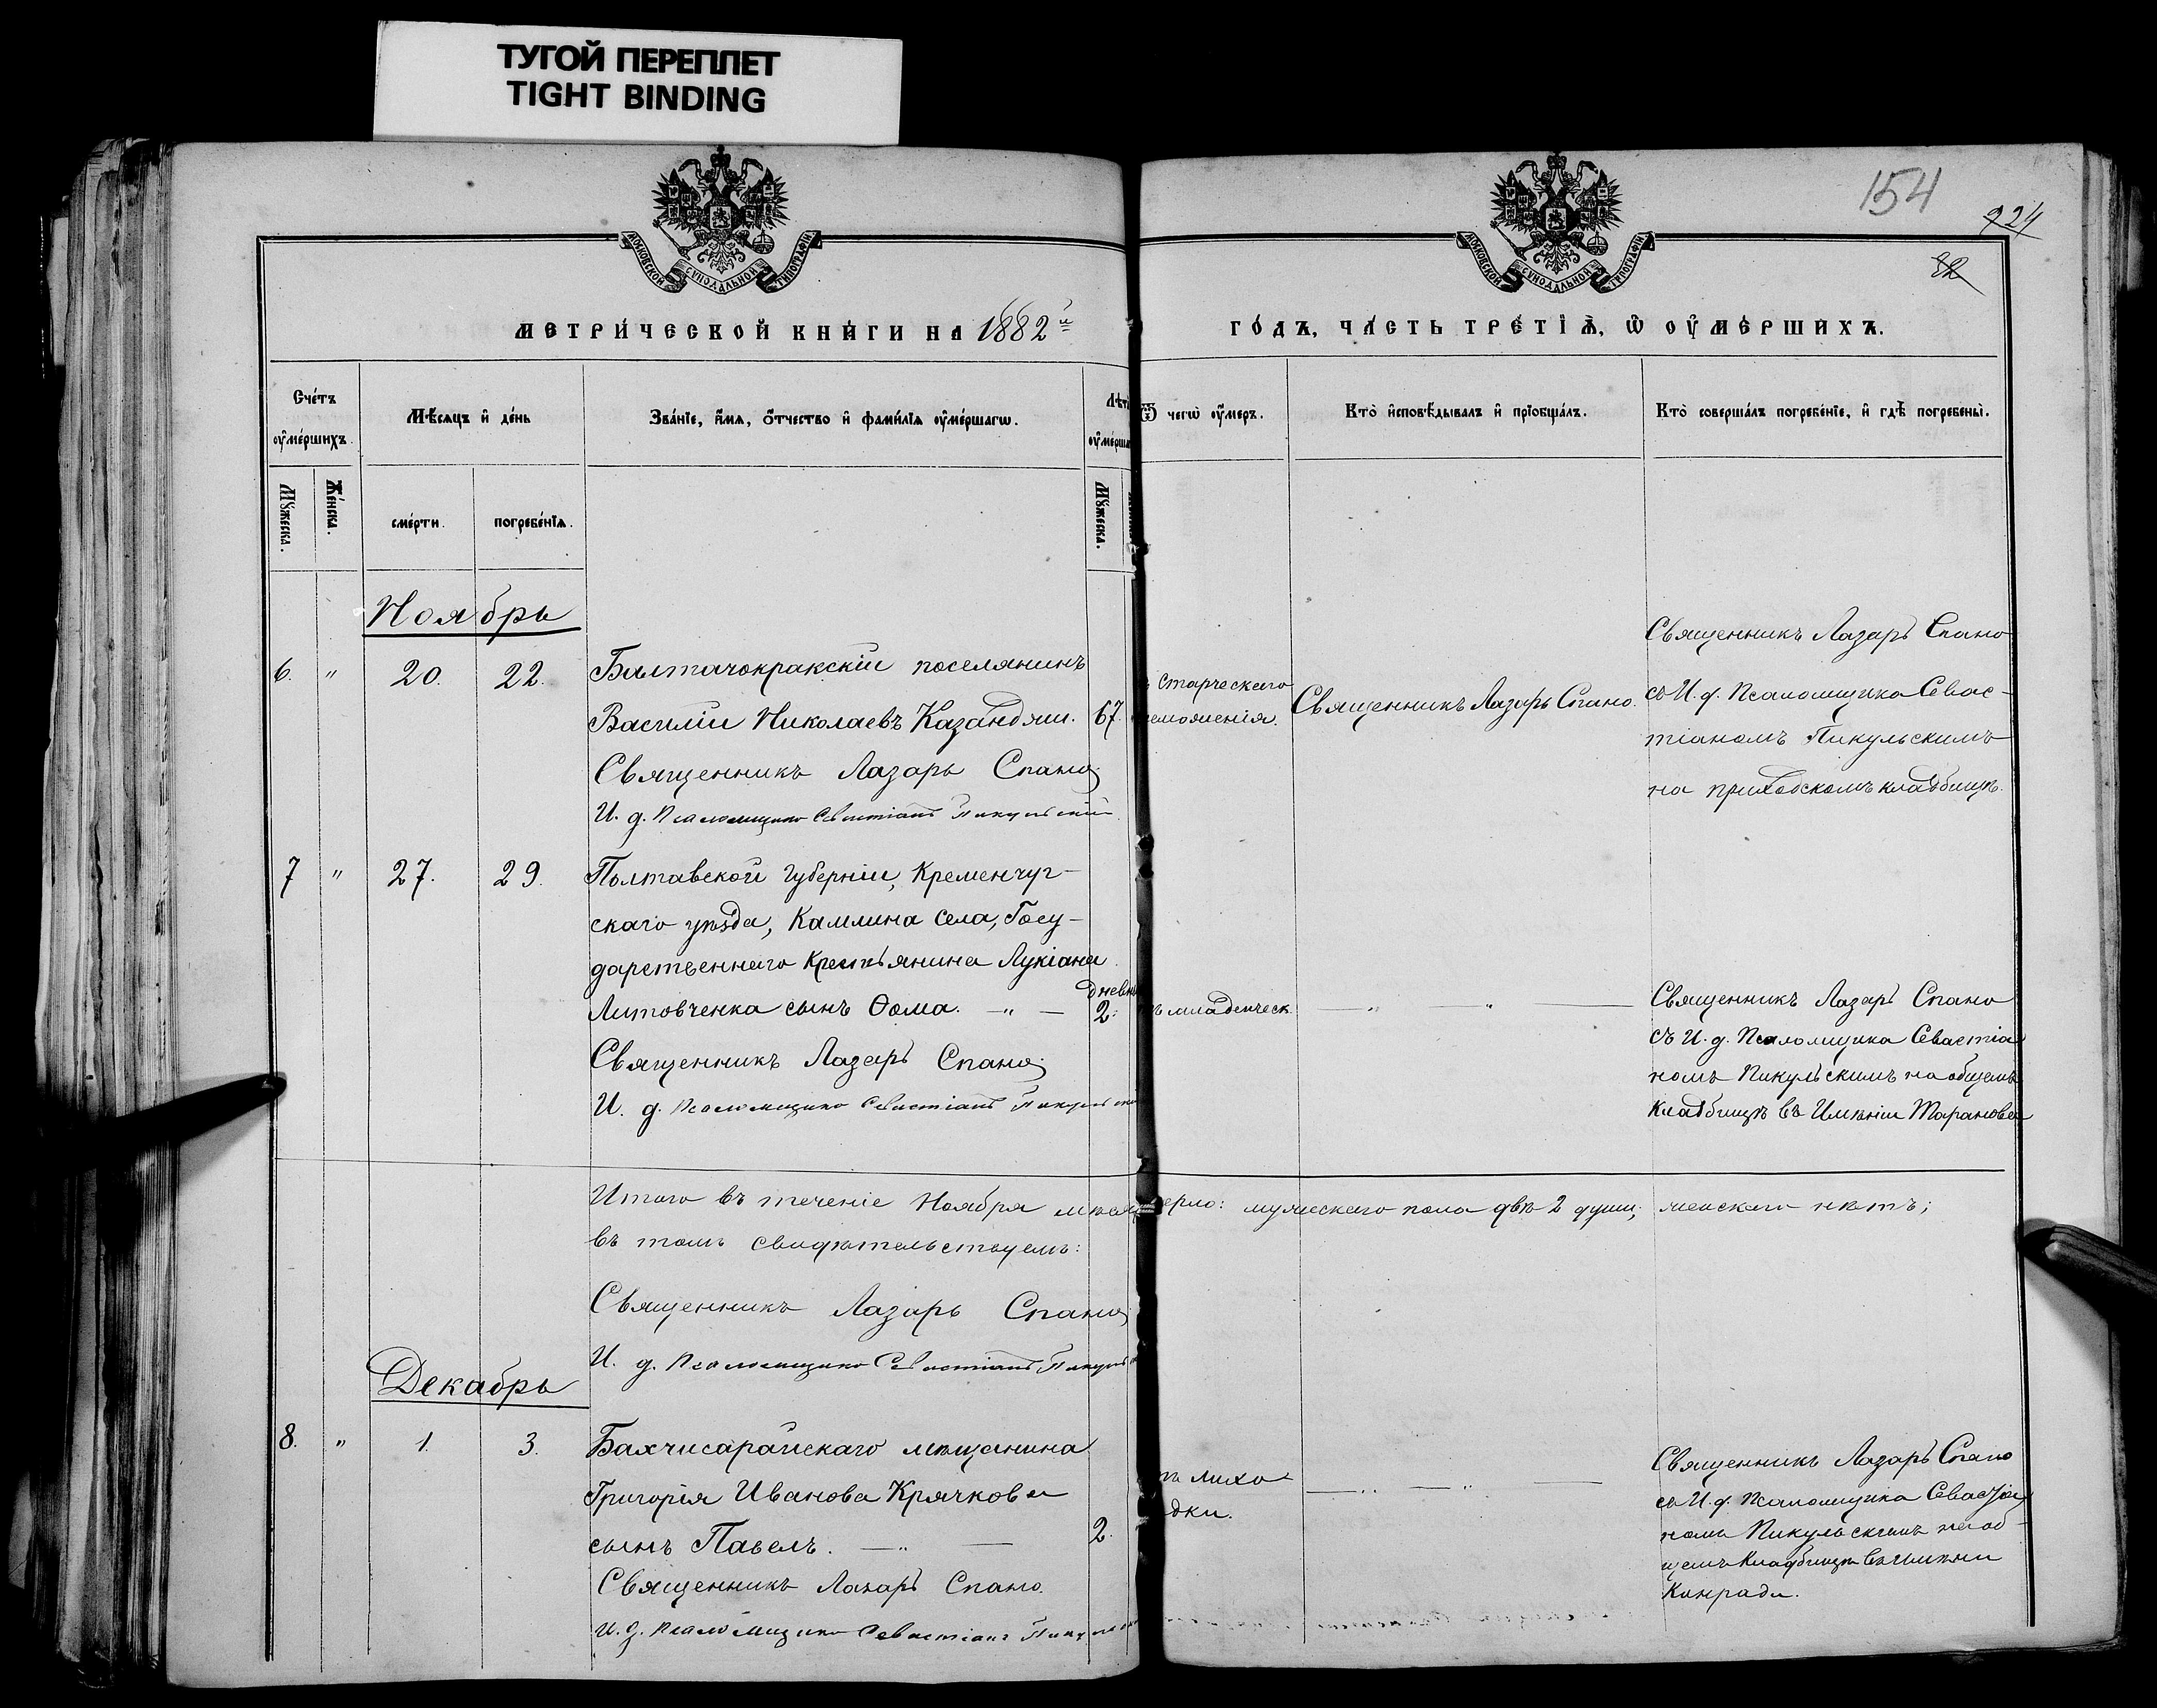 ТУГОЙ ПЕРЕПЛЕТ
TIGHT BINDING
МОСКОВСКОЙ СѴНОДАЛЬНОЙ ТИПОГРАФІИ
МОСКОВСКОЙ СѴНОДАЛЬНОЙ ТИПОГРАФІИ
154
224
МЕТРИ́ЧЕСКОЙ КНИ́ГИ НА 1882й
ГО́ДЪ, ЧА́СТЬ ТРЕ́ТІѦ, Ѡ ОУ҆МЕ́РШИХЪ.
Сче́тъ оу҆ме́ршихъ.
Мѣ́сяцъ и҆ де́нь
Зва́нїе, и҆́мя, о҆́тчество и҆ фами́лїя оу҆ме́ршагѡ.
Лѣт
оу҆ме́рша
Ѿ чегѡ̀ оу҆́меръ.
Кто̀ и҆сповѣ́дывалъ и҆ прїобща́лъ.
Кто̀ соверша́лъ погребе́нїе, и҆ гдѣ̀ погребены̀.
Му́жеска.
Же́нска.
сме́рти.
погребе́нїя.
Му́жеска.
Ноябрь
6. " 20. 22. Балтачокракскій поселянинъ
Василій Николаевъ Казанджи. 67.
Священникъ Лазарь Спано
И. д. Псаломщика Севастіанъ Пикульскій
старческаго
Священникъ Лазарь Спано.
Священникъ Лазарь Спано
съ И. д. Псаломщика Севас-
тіаномъ Пикульскимъ
на приходскомъ кладбищѣ.
7 " 27. 29. Полтавской губерніи, Кременчуг-
скаго уѣзда, села, Госу-
дарственнаго Крестьянина Лукіана
Литовченка сынъ Ѳома. — " — дневн 2.
Священникъ Лазарь Спано
И. д. Псаломщика Севастіанъ Пикульскі
ъ младенческ.
— " — " —
Священникъ Лазарь Спано
съ И. д. Псаломщика Севастіа
номъ Пикульскимъ на общемъ
кладбищѣ въ Имѣніи Таранова
Итого въ теченіе Ноября мѣсяц ерло: мужескаго пола двѣ 2 души; женскаго нѣтъ;
въ томъ свидѣтельствуемъ:
Священникъ Лазарь Спано
И. д. Псаломщика Севастіанъ Пикульс
Декабрь
8. " 1. 3. Бахчисарайскаго мѣщанина
Григорія Иванова Крячкова
сынъ Павелъ. — " — 2.
Священникъ Лазарь Спано.
И. д. Псаломщика Севастіанъ Пикульск
тъ лихо
дки.
— " — " —
Священникъ Лазарь Спано
съ И. д. Псаломщика Севастіа
номъ Пикульскимъ на об-
щемъ кладбищѣ въ имѣніи
Конради.